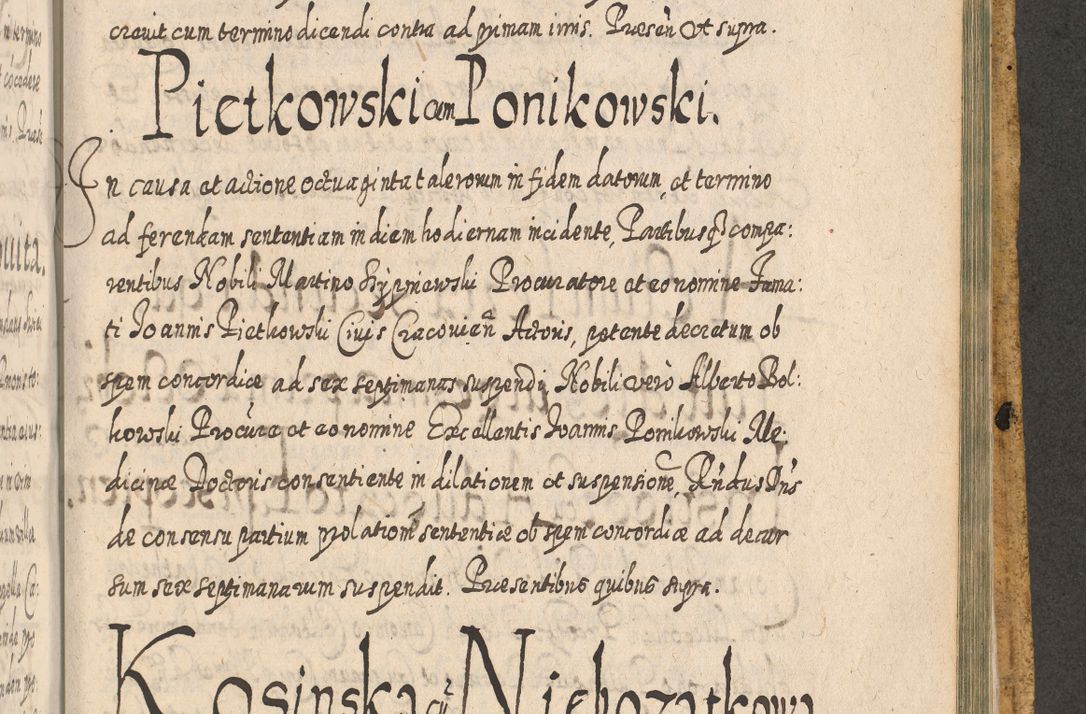 crevit cum termino dicendi contra ad primam iuris. Præsen̄ Vt supra.
Pietkowski cum Ponikowski.
In causa et actione octuaginta talerorum in fidem datorum, et termino
ad ferendam sententiam in diem hodiernam incidente, Partibusq3 compa:
rentibus Nobili Martino Krypniewski Procuratore et eo nomine Fama:
ti Joannis Pietkowski Civis Cracovien̄ Actoris, petente decretum ob
spem concordiæ ad sex septimanas suspendi, Nobili verò Alberto Bol:
kowski Procura et eo nomine Excellentis Joannis Ponikowski Me:
dicinæ Doctoris consentiente in dilationem et suspensionē, Rn̄dus Dn̄s
de consensu partium prolationē sententiæ ob spem concordiæ ad decur
sum sex septimanarum suspendit. Præsentibus quibus supra.
Kosinska cū Niebozatkowa